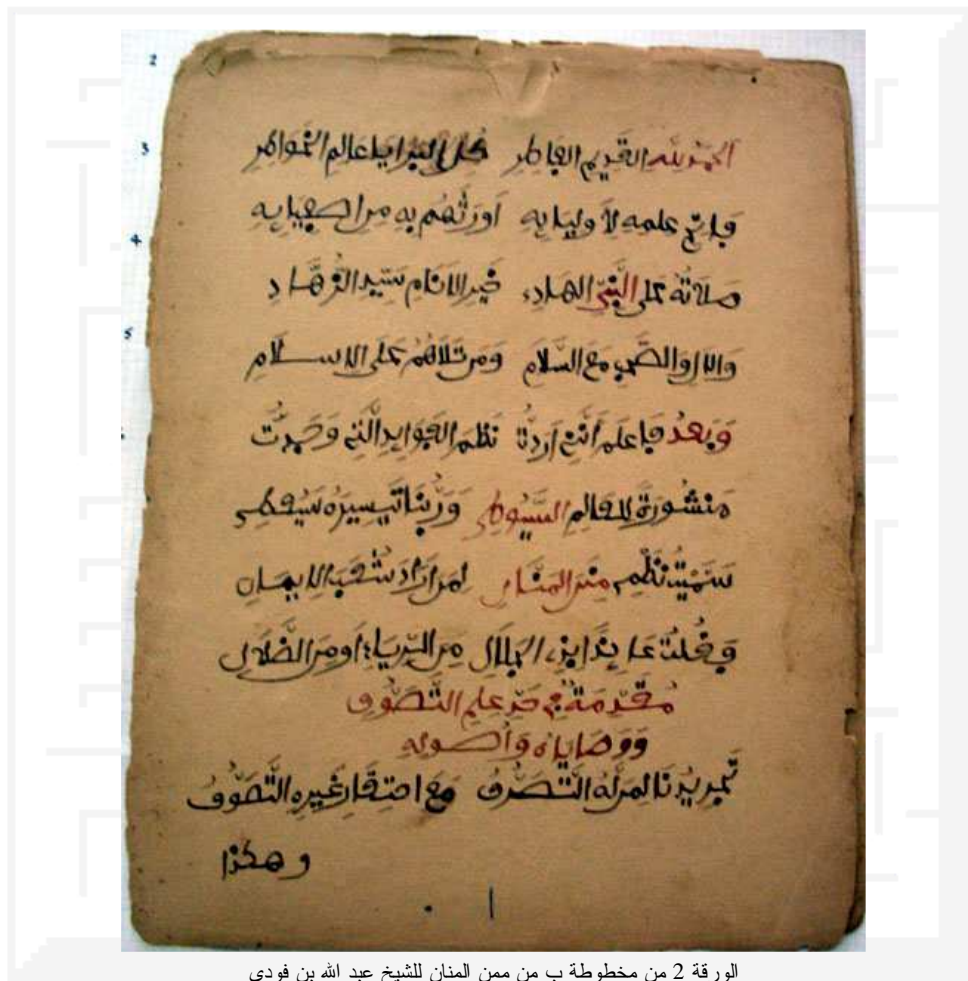 2
الحمد لله القديم الفاطر كل البرايا عالم الخواطر
3
فاتح علمه لأوليايه أورثهم به من اصفيايه
4
صلاته على النبي الهادي خير الانام سيد الزهاد
5
والال والصحب مع السلام ومن تلاهم على الاسلام
وبعد فاعلم أنني أردت نظم الفوايد التي وجدت
منشورة للعالم السيوطي وربنا تيسيره سيعطي
سميت نظمي منن المنان لمن اراد شعب الايمان
فقلت عايذا بذي الجلال من الرياء او من الضلال
مقدمة في حد علم التصوف
ووصاياه وأصوله
تجريدنا لمن له التصرف مع احتقار غيره التصوف
وهكذا
1
الورقة 2 من مخطوطة ب من ممن المنان للشيخ عبد الله بن فودي